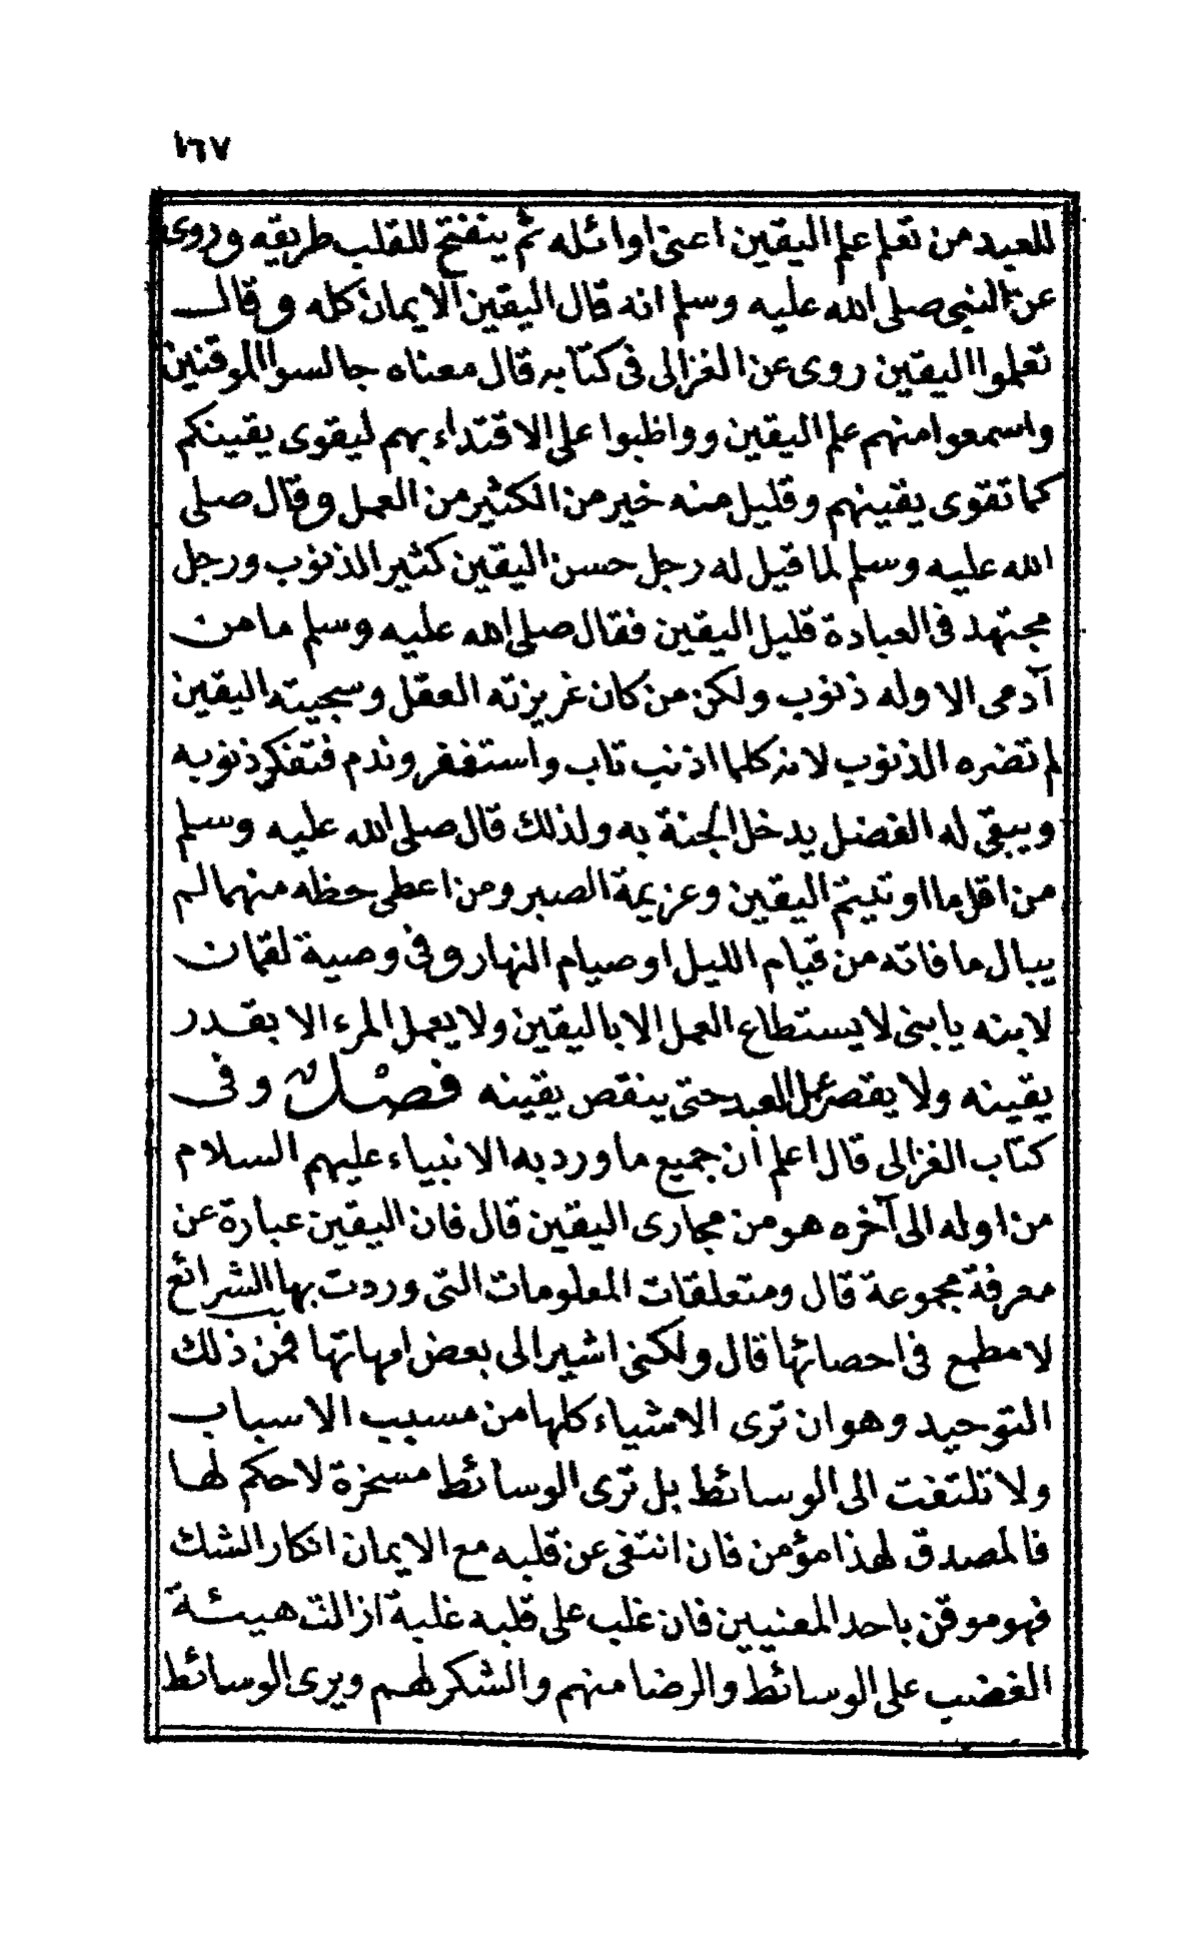 ١٦٧
للعبد من تعلم علم اليقين اعنى اوائله ثم ينفتح للقلب طريقه وروى
عن النبى صلى الله عليه وسلم انه قال اليقين الايمان كله وقال
تعلموا اليقين روى عن الغزالى فى كتابه قال معناه جالسوا الموقنين
واسمعوا منهم علم اليقين وواظبوا على الاقتداء بهم ليقوى يقينكم
كما تقوى يقينهم وقليل منه خير من الكثير من العمل وقال صلى
الله عليه وسلم لما قيل له رجل حسن اليقين كثير الذنوب ورجل
مجتهد فى العبادة قليل اليقين فقال صلى الله عليه وسلم ما من
آدمى الا وله ذنوب ولكن من كان غريزته العقل وسجيته اليقين
لم تضره الذنوب لانه كلما اذنب تاب واستغفر وندم فتفكر ذنوبه
ويبقى له الفضل يدخل الجنة به ولذلك قال صلى الله عليه وسلم
من اقل ما اوتيتم اليقين وعزيمة الصبر ومن اعطى حظه منهما لم
يبال ما فاته من قيام الليل او صيام النهار وفى وصية لقمان
لابنه يابنى لا يستطاع العمل الا باليقين ولا يعمل المرء الا بقدر
يقينه ولا يقصر عمل العبد حتى ينقص يقينه فصل وفى
كتاب الغزالى قال اعلم أن جميع ما ورد به الانبياء عليهم السلام
من اوله الى آخره هو من مجارى اليقين قال فان اليقين عبارة عن
معرفة مجموعة قال ومتعلقات المعلومات التى وردت بها الشرائع
لا مطمع فى احصائها قال ولكنى اشير الى بعض امهاتها فمن ذلك
التوحيد وهو ان ترى الاشياء كلها من مسبب الاسباب
ولا تلتفت الى الوسائط بل ترى الوسائط مسخرة لا حكم لها
فالمصدق لهذا مؤمن فان انتفى عن قلبه مع الايمان انكار الشك
فهو موقن باحد المعنيين فان غلب على قلبه غلبة ازالت هيئة
الغضب على الوسائط والرضا منهم والشكر لهم ويرى الوسائط